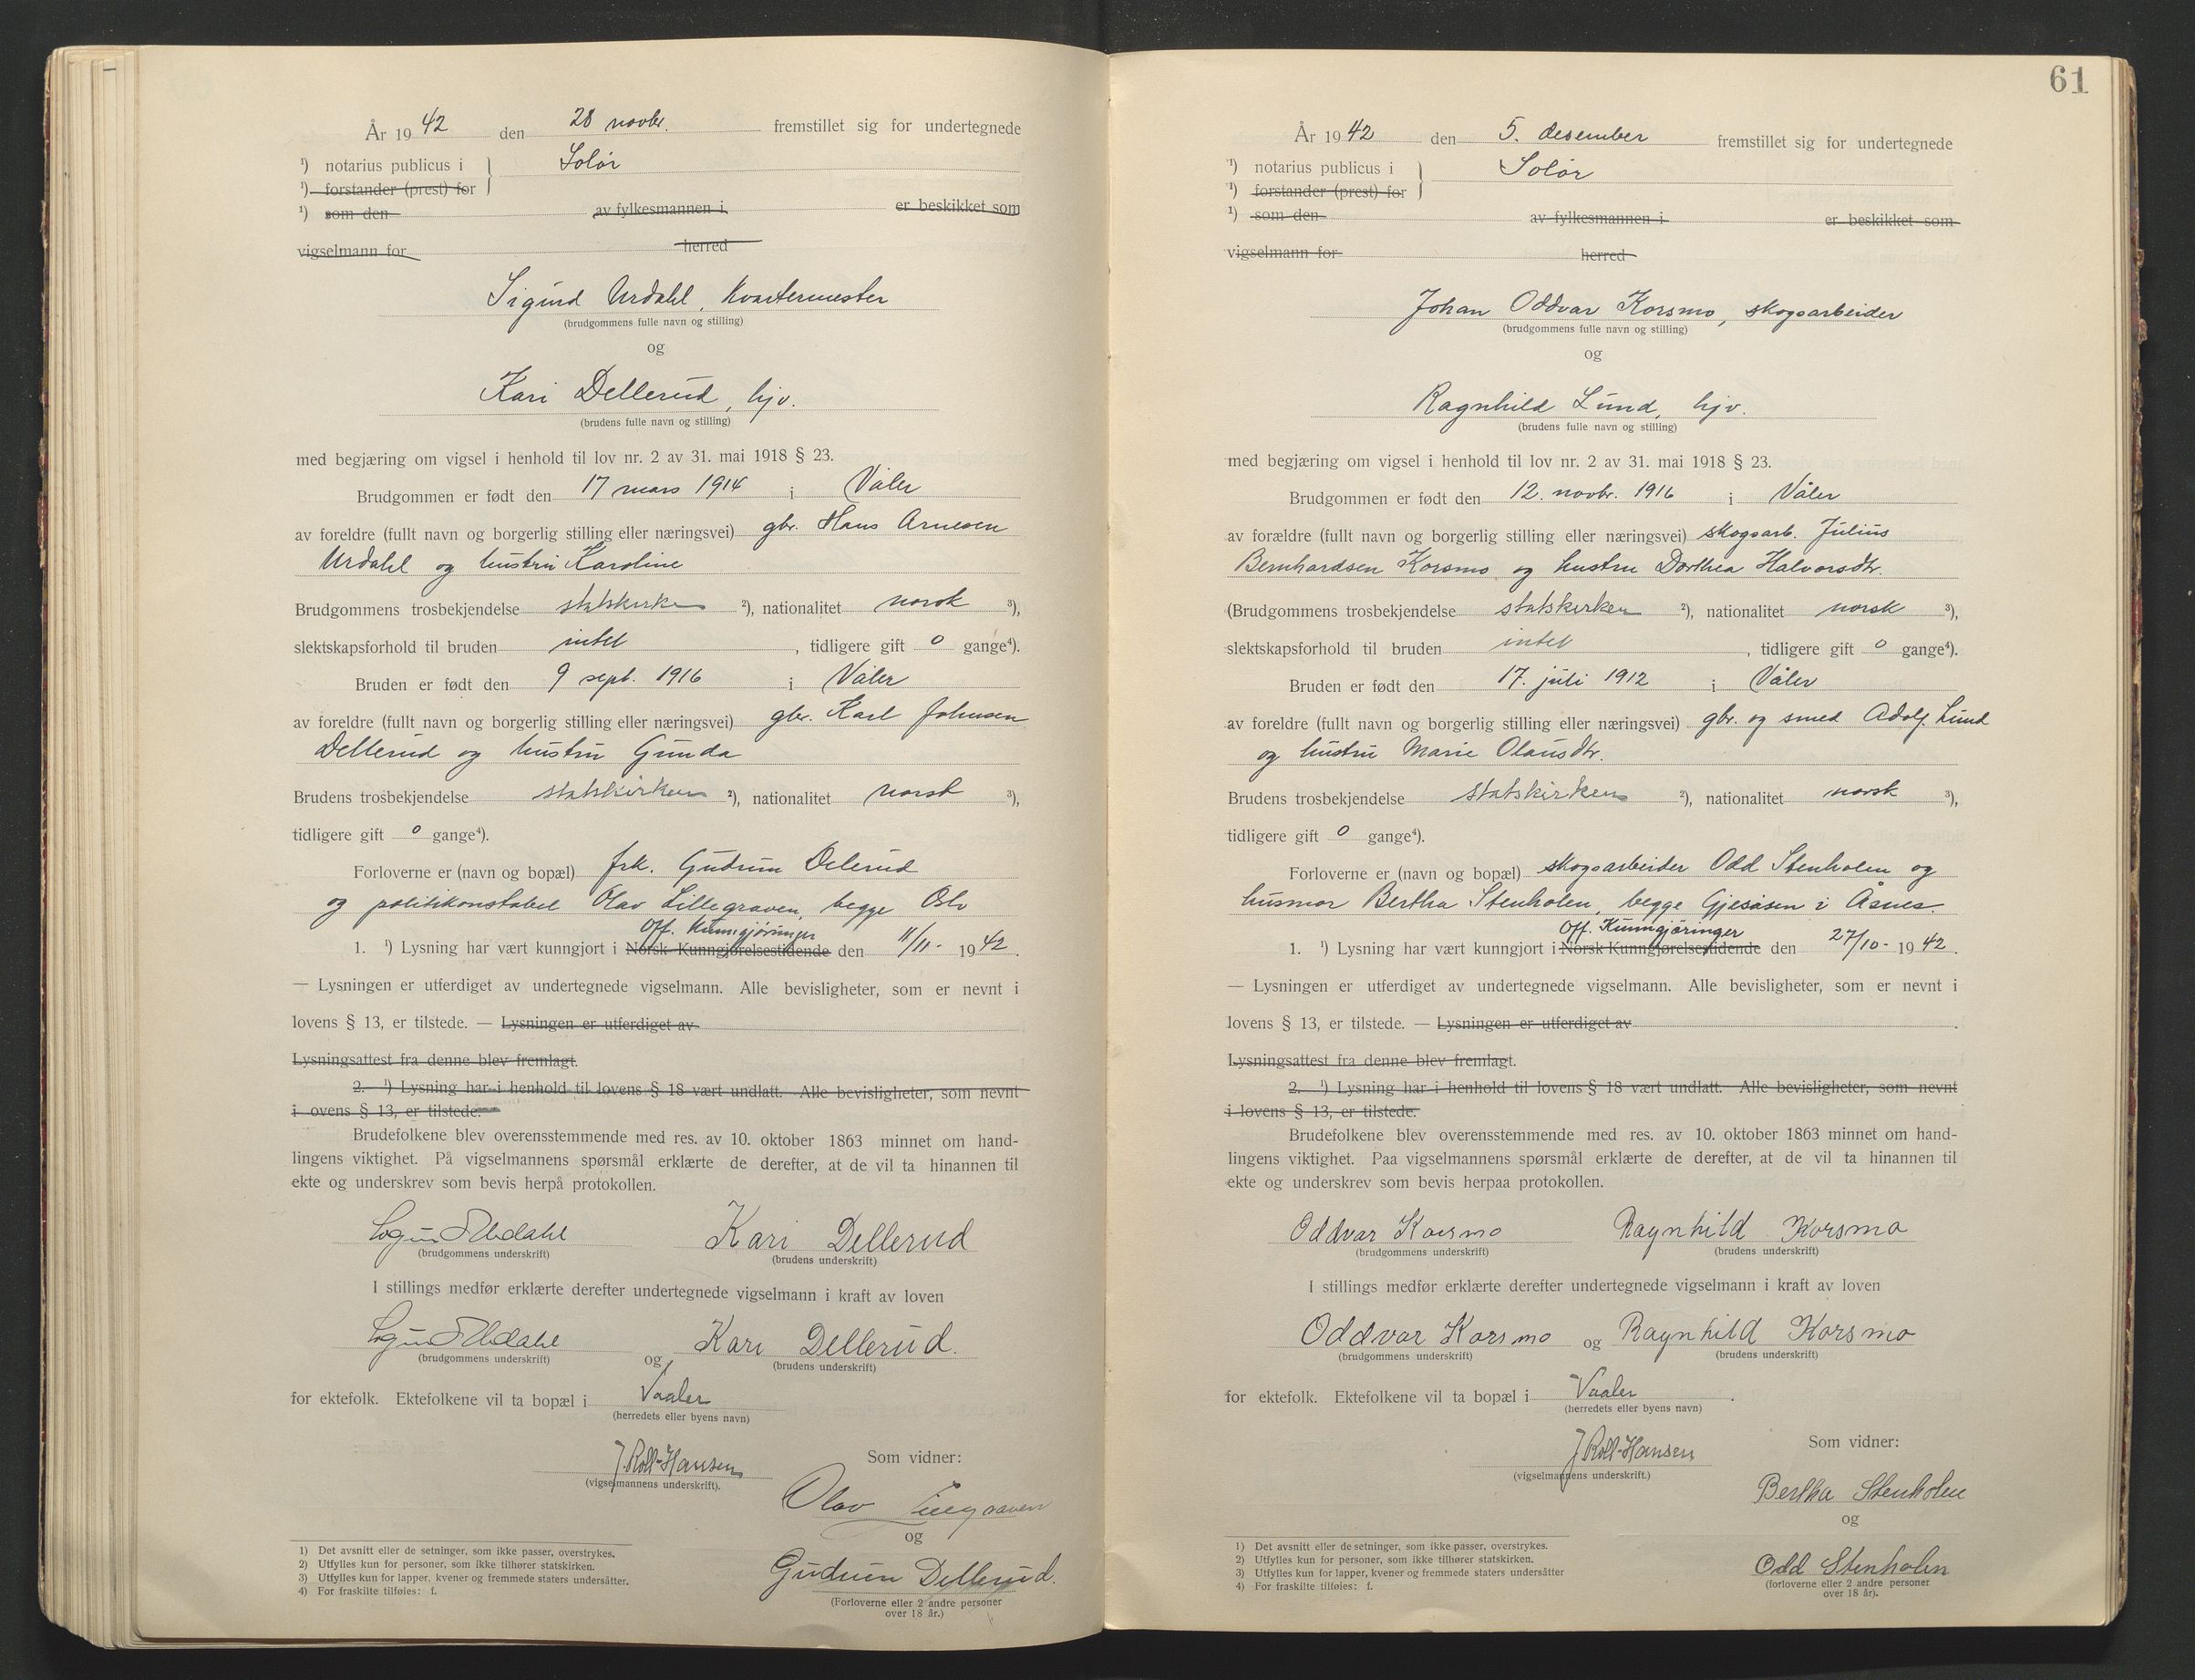 År 1942 den 28 novbr. fremstillet sig for undertegnede
¹) notarius publicus i } Solør
¹) forstander (prest) for
¹) som den av fylkesmannen i er beskikket som
vigselmann for herred
Sigurd Urdahl, kvartermester
(brudgommens fulle navn og stilling)
og
Kari Dellerud, hjv.
(brudens fulle navn og stilling)
med begjæring om vigsel i henhold til lov nr. 2 av 31. mai 1918 § 23.
Brudgommen er født den 17 mars 1914 i Våler
av foreldre (fullt navn og borgerlig stilling eller næringsvei) gbr. Hans Arnesen
Urdahl og hustru Karoline
Brudgommens trosbekjendelse statskirken ²), nationalitet norsk ³),
slektskapsforhold til bruden intet, tidligere gift 0 gange⁴).
Bruden er født den 9 sept. 1916 i Våler
av foreldre (fullt navn og borgerlig stilling eller næringsvei) gbr. Karl Johnsen
Dellerud og hustru Gunda
Brudens trosbekjendelse statskirken ²), nationalitet norsk ³),
tidligere gift 0 gange⁴).
Forloverne er (navn og bopæl) frk. Gudrun Delerud
og politikonstabel Olav Lillegraven, begge Oslo
Off. Kunngjøringer
1. ¹) Lysning har vært kunngjort i Norsk Kunngjørelsestidende den 11/11- 1942.
— Lysningen er utferdiget av undertegnede vigselmann. Alle bevisligheter, som er nevnt i
lovens § 13, er tilstede. — Lysningen er utferdiget av
Lysningsattest fra denne blev fremlagt.
2. ¹) Lysning har i henhold til lovens § 18 vært undlatt. Alle bevisligheter, som nevnt
i ovens § 13, er tilstede.
Brudefolkene blev overensstemmende med res. av 10. oktober 1863 minnet om hand-
lingens viktighet. På vigselmannens spørsmål erklærte de derefter, at de vil ta hinannen til
ekte og underskrev som bevis herpå protokollen.
Sigurd Urdahl Kari Dellerud
(brudgommens underskrift) (brudens underskrift)
I stillings medfør erklærte derefter undertegnede vigselmann i kraft av loven
Sigurd Urdahl og Kari Dellerud.
(brudgommens underskrift) (brudens underskrift)
for ektefolk. Ektefolkene vil ta bopæl i Vaaler
(herredets eller byens navn)
J. Roll-Hansen
(vigselmannens underskrift).
Som vidner:
Olav Lillegraven
og
Gudrun Dellerud.
(Forloverne eller 2 andre personer
over 18 år.)
1) Det avsnitt eller de setninger, som ikke passer, overstrykes.
2) Utfylles kun for personer, som ikke tilhører statskirken.
3) Utfylles kun for lapper, kvener og fremmede staters undersåtter.
4) For fraskilte tilføies: f.
61
År 1942 den 5. desember fremstillet sig for undertegnede
¹) notarius publicus i } Solør
¹) forstander (prest) for
¹) som den av fylkesmannen i er beskikket som
vigselmann for herred
Johan Oddvar Korsmo, skogsarbeider
(brudgommens fulle navn og stilling)
og
Ragnhild Lund, hjv.
(brudens fulle navn og stilling)
med begjæring om vigsel i henhold til lov nr. 2 av 31. mai 1918 § 23.
Brudgommen er født den 12. novbr. 1916 i Våler
av forældre (fullt navn og borgerlig stilling eller næringsvei) skogsarb. Julius
Bernhardsen Korsmo og hustru Dorthea Halvorsdtr.
(Brudgommens trosbekjendelse statskirken ²), nationalitet norsk ³),
slektskapsforhold til bruden intet, tidligere gift 0 gange⁴).
Bruden er født den 17. juli 1912 i Våler
av foreldre (fullt navn og borgerlig stilling eller næringsvei) gbr. og smed Adolf Lund
og hustru Marie Olausdtr.
Brudens trosbekjendelse statskirken ²), nationalitet norsk ³),
tidligere gift 0 gange⁴).
Forloverne er (navn og bopæl) skogsarbeider Odd Stenholen og
husmor Bertha Stenholen, begge Gjesåsen i Åsnes.
Off. Kunngjøringer
1. ¹) Lysning har vært kunngjort i Norsk Kunngjørelsestidende den 27/10- 1942.
— Lysningen er utferdiget av undertegnede vigselmann. Alle bevisligheter, som er nevnt i
lovens § 13, er tilstede. — Lysningen er utferdiget av .
Lysningsattest fra denne blev fremlagt.
2. ¹) Lysning har i henhold til lovens § 18 vært undlatt. Alle bevisligheter, som nevnt
i lovens § 13, er tilstede.
Brudefolkene blev overensstemmende med res. av 10. oktober 1863 minnet om hand-
lingens viktighet. Paa vigselmannens spørsmål erklærte de derefter, at de vil ta hinannen til
ekte og underskrev som bevis herpaa protokollen.
Oddvar Korsmo Ragnhild Korsmo
(brudgommens underskrift) (brudens underskrift)
I stillings medfør erklærte derefter undertegnede vigselmann i kraft av loven
Oddvar Korsmo og Ragnhild Korsmo
(brudgommens underskrift) (brudens underskrift)
for ektefolk. Ektefolkene vil ta bopæl i Vaaler.
(herredets eller byens navn)
J Roll-Hansen
(vigselmannens underskrift.)
Som vidner:
Bertha Stenholen
og
Odd Stenholen
(forloverne eller 2 andre personer
over 18 år).
1) Det avsnitt eller de setninger, som ikke passer, overstrykes.
2) Utfylles kun for personer, som ikke tilhører statskirken.
3) Utfylles kun for lapper, kvener og fremmede staters undersåtter
4) For fraskilte tilføies: f.